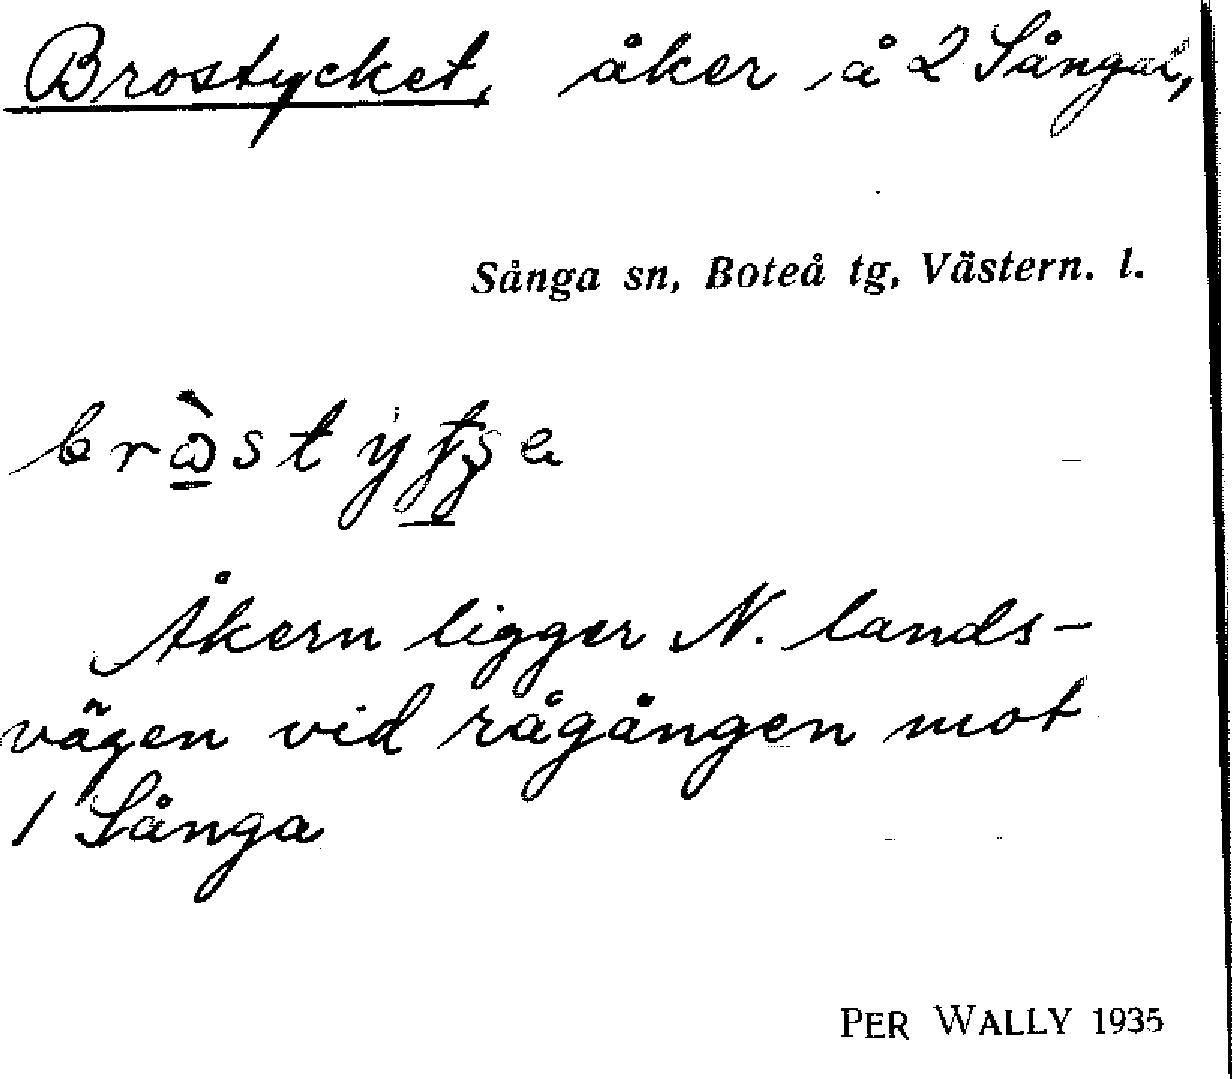 Brostycket, åker å 2 Sånga,
Sånga sn, Boteå tg, Västern. l.
Åkern ligger N. lands-
vägen vid rågången mot
1 Sånga
PER WALLY 1935